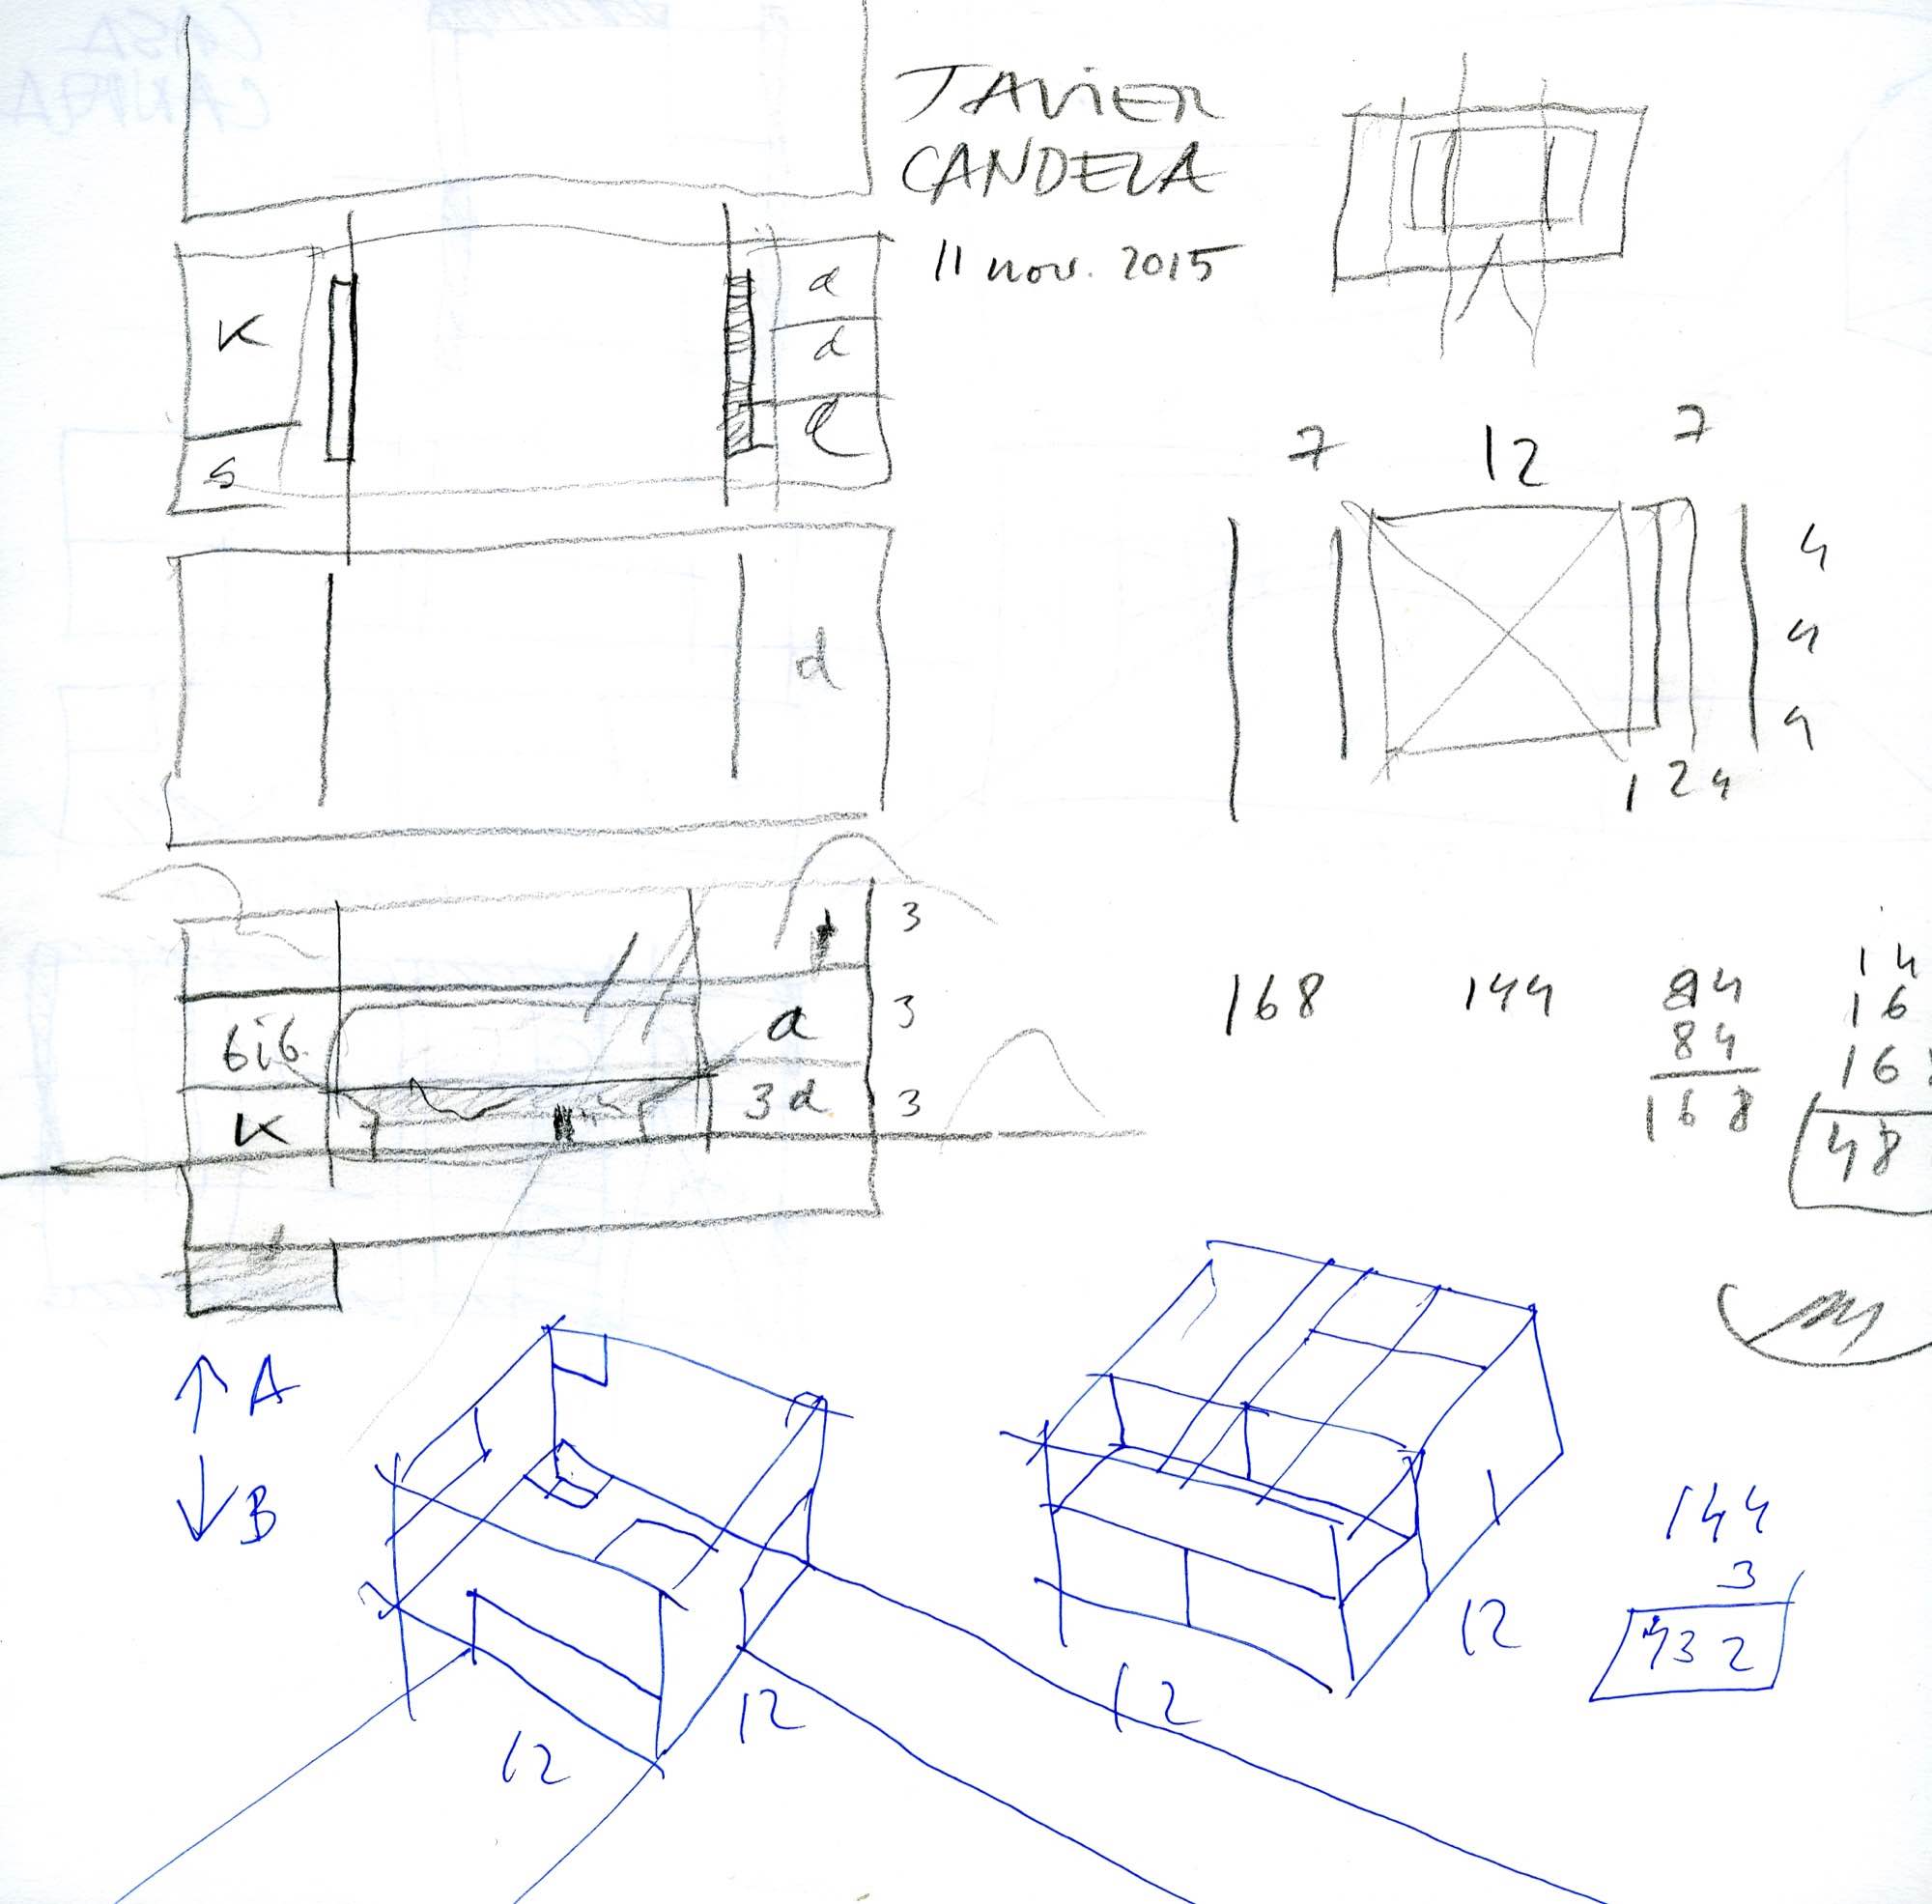 JAVIER
CANDELA
11 nov. 2015
K
S
d
d
d
7 12 7
4
4
4
1 2 4
3
bib. a 3
K 3d 3
168 144
84
84
168
14
16
16
48
↑ A
↓ B
12 12
12 12
144
3
432